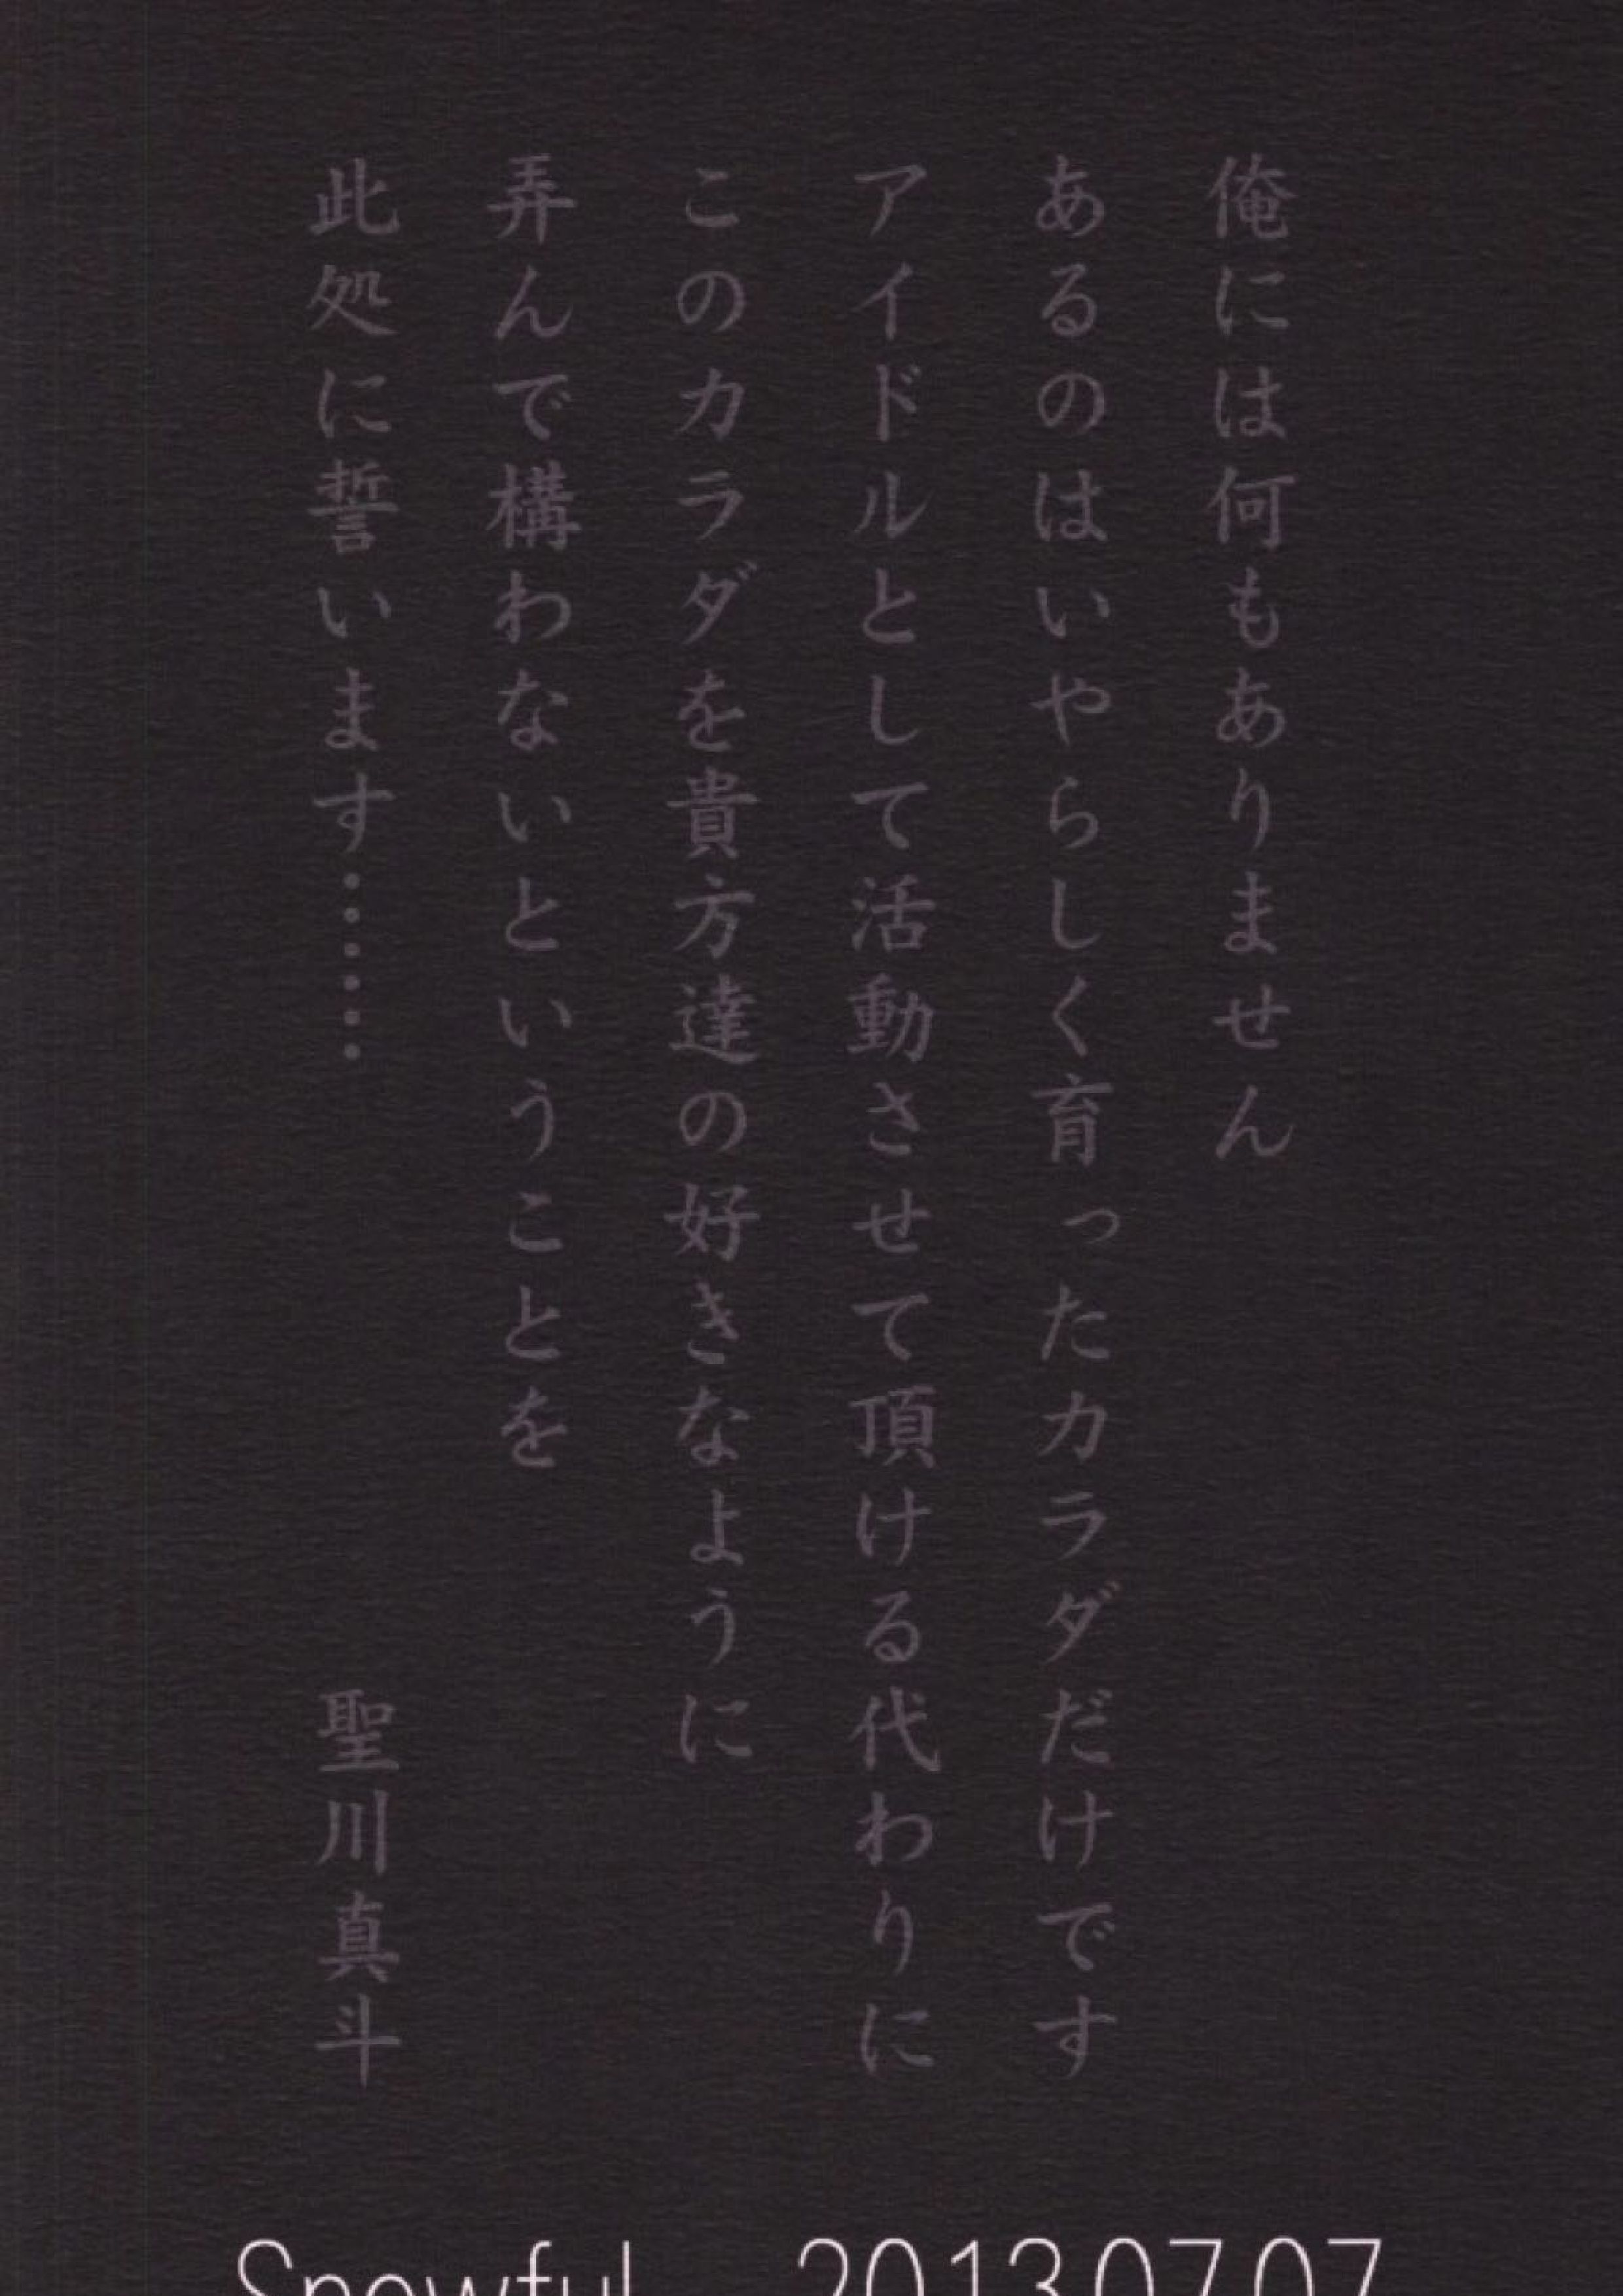 俺には何もありません
あるのはいやらしく育ったカラダだけです
アイドルとして活動させて頂ける代わりに
このカラダを貴方達の好きなように
弄んで構わないということを
此処に誓います…… 聖川真斗
Snowful 2013.07.07